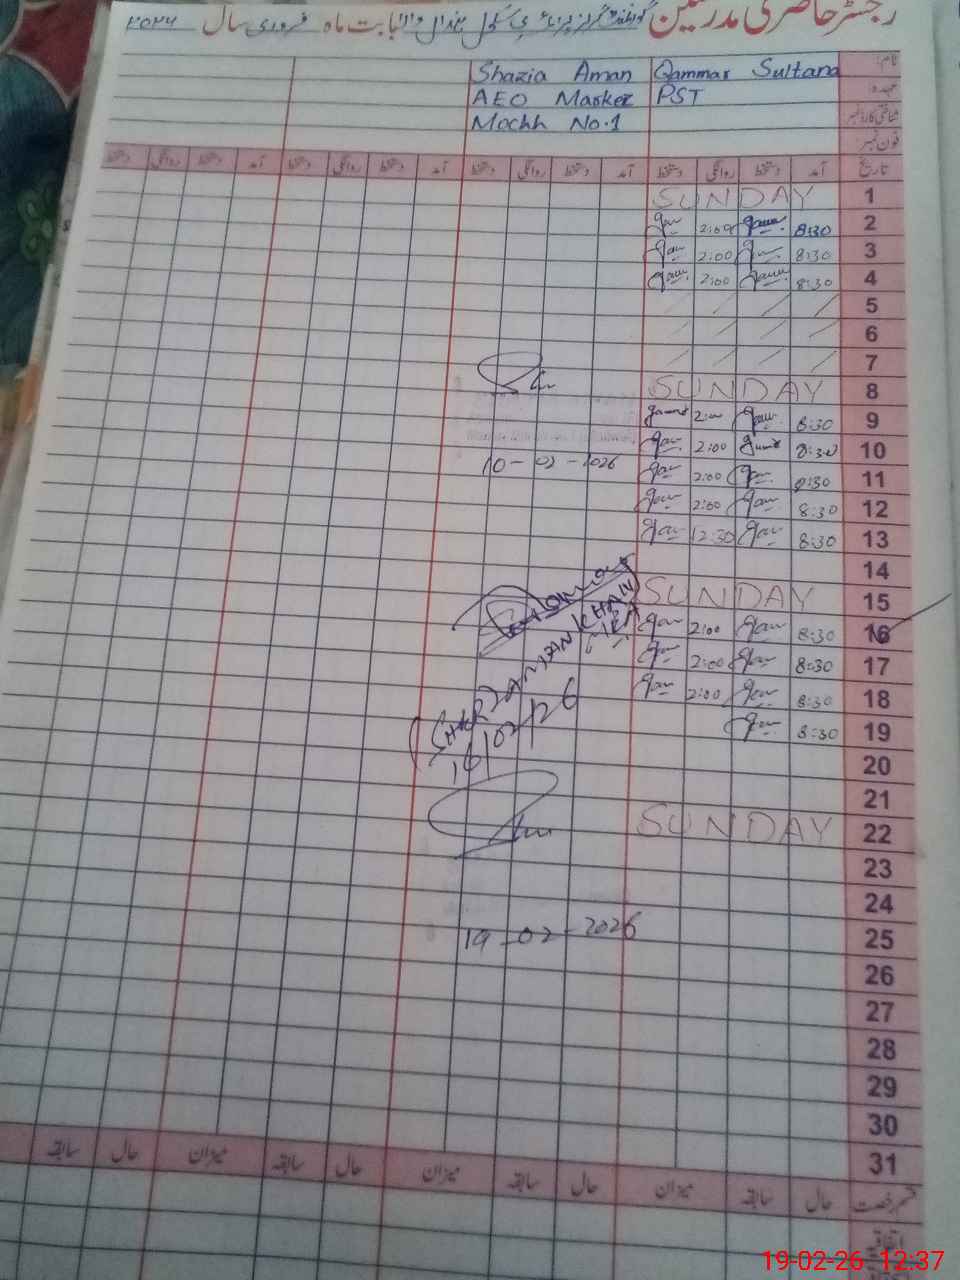 رجسٹر حاضری مدرسین گورنمنٹ گرلز پرائمری سکول بابت ماہ فروری سال ۲۰۲۶
نام: Qammar Sultana Shazia Aman
عہدہ: PST AEO Markez
شناختی کارڈ نمبر Mochh No.1
فون نمبر:
تاریخ آمد دستخط روانگی دستخط آمد دستخط روانگی دستخط آمد دستخط روانگی دستخط آمد دستخط روانگی دستخط
1 SUNDAY
2 8:30 2:00
3 8:30 2:00
4 8:30 2:00
5
6
7
8 SUNDAY
9 8:30
10 8:30 2:00 10-02-2026
11 8:30 2:00
12 8:30 2:00
13 8:30 12:30
14
15 SUNDAY
16 8:30 2:00
17 8:30 2:00
18 8:30 2:00
16/02/26
19 8:30
20
21
22 SUNDAY
23
24
25 19-02-2026
26
27
28
29
30
31
قسم رخصت حال سابقہ میزان حال سابقہ میزان حال سابقہ میزان حال سابقہ
اتفاقیہ
19-02-26 12:37